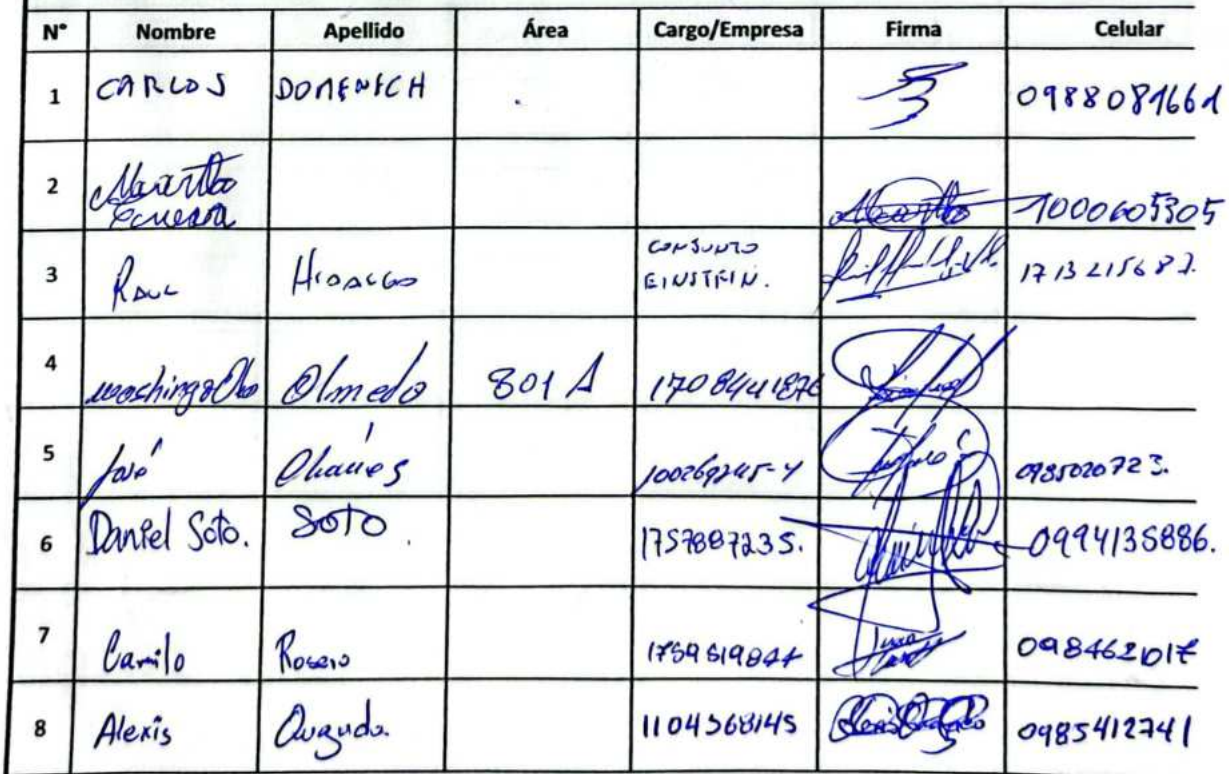 N° Nombre Apellido Área Cargo/Empresa Firma Celular
1 CARLOS DOMENECH 0988081661
2 Martha
1000605305
3 Raul Hidalgo CONJUNTO EINSTEIN. 1713215687.
4 Washington Olmedo 801 A 1708441876
5 José 100269245-4 0985020723.
6 Daniel Soto. SOTO. 1757887235. 0994135886.
7 Camilo Rosero 0984621017
8 Alexis 1104568145 0985412741